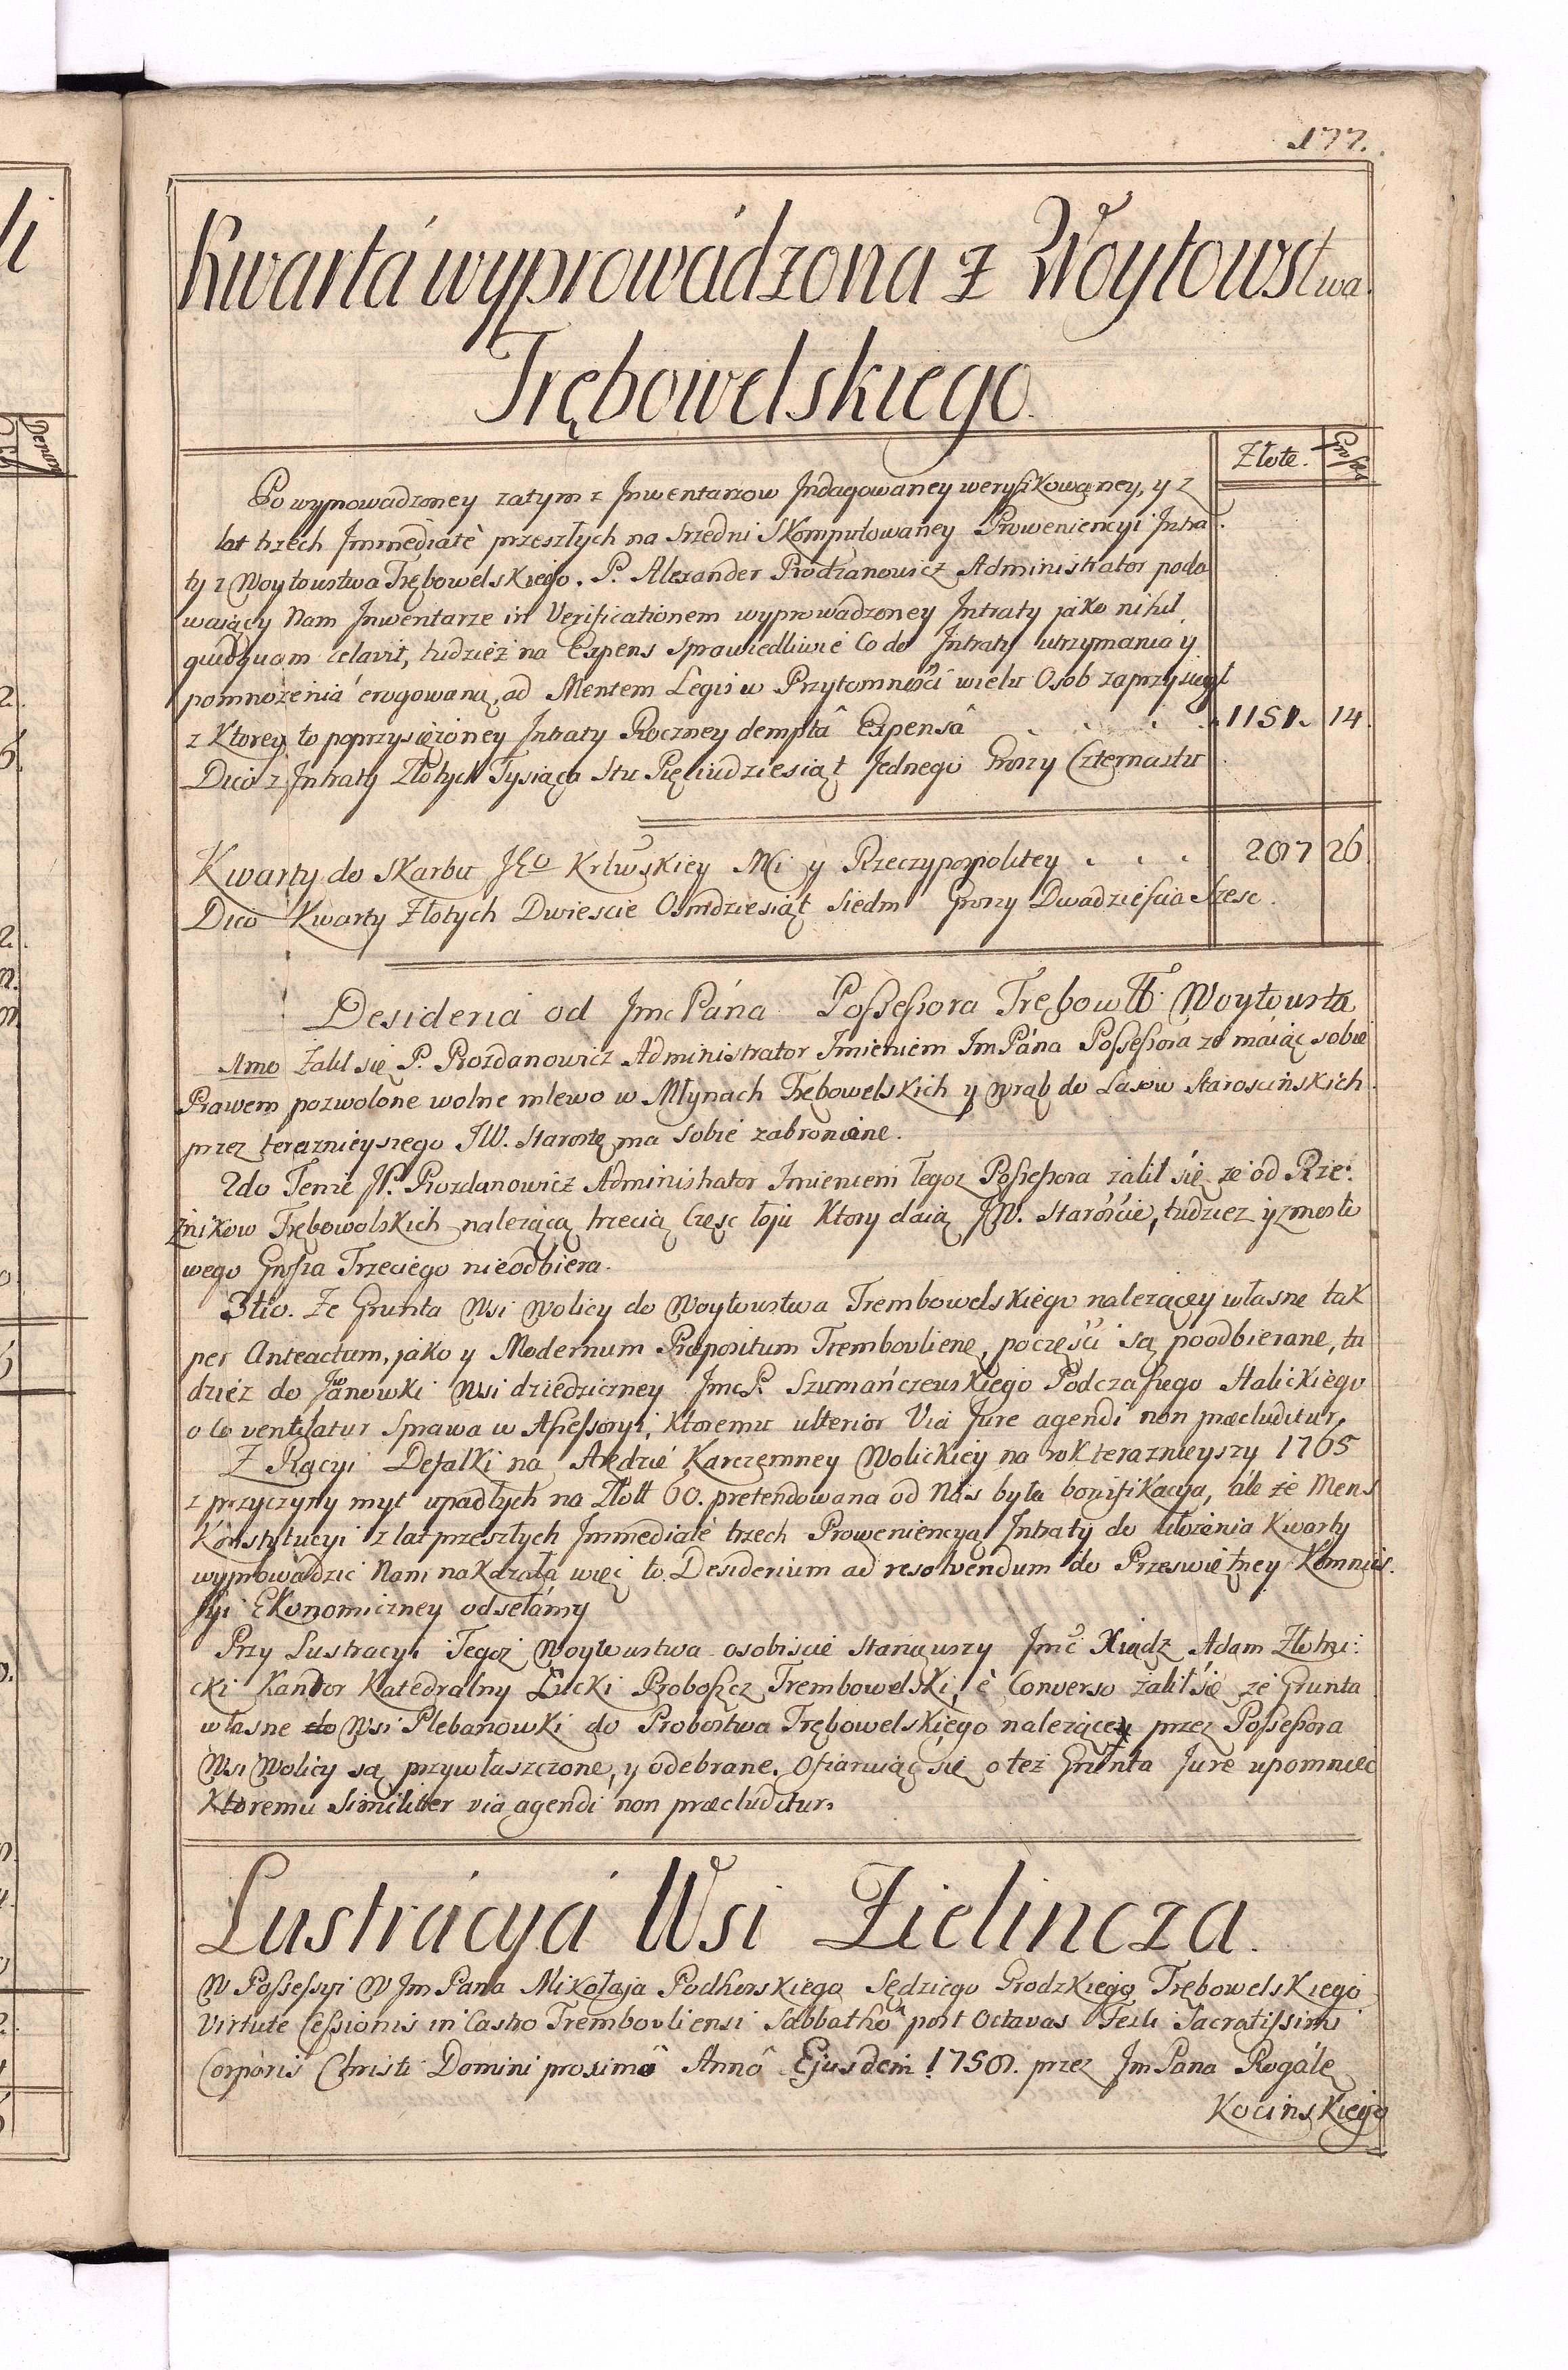 177.
Kwarta wyprowádzona z Woytowstwa
Trębowelskiego.
Złote. Grosze
Po wyprowadzoney zatym z Jnwentarzow Jndagowaney weryfikowaney, y z
lat trzech Jmmediatè przeszłych na srzedni Skomputowaney Proweniencyi Jntra
ty z Woytowstwa Trębowelskiego. P. Alexander Prozdanowicz Administrator poda
waiący Nam Jnwentarze in Verificationem wyprowadzoney Jntraty jako nihil
quidquam celavit, tudzież na Expens sprawiedliwie Co do Jntraty utrzymania y
pomnożenia erogowaną, ad Mentem Legis w Przytomności wielu Osob zaprzysiągł
z Ktorey to poprzysiężoney Jntraty Roczney demptâ Expensâ . . . 1151. 14.
Dico z Jntraty Złotych Tysiąca Stu Pięciudziesiąt Jednego Groszy Czternastu
Kwarty do Skarbu JKo Krlwskiey Mci y Rzeczypospolitey . . . 287 26.
Dico Kwarty Złotych Dwiescie Osmdziesiąt Siedm Groszy Dwadziescia Szesc.
Desideria od Jmc Pána Possessora Trębowll Woytowstá
1mo Żalił się P. Prozdanowicz Administrator Jmieniem Jm Pána Possessora że máiąc sobie
Prawem pozwolone wolne mlewo w Młynach Trębowelskich y wrąb do Lasow Staroscinskich
przez teraznieyszego JW. Starostę ma sobie zabronione.
2do Tenże JP. Prozdanowicz Administrator Jmieniem tegoz Possessora żalił się że od Rze:
źnikow Trębowolskich należącą trzecią Częsc łoju Ktory daią JW. Starościе, tudziez y zmosto
wego Grosza Trzeciego nieodbiera.
3tio. Że Grunta Wsi Wolicy do Woytowstwa Trembowelskiego nalezącey własne tak
per Anteactum, jako y Modernum Præpositum Trembovliene, poczęści są poodbierane, tu
dzież do Janowki Wsi dziedziczney JmcP. Szumańczewskiego Podczasego Halickiego
o co ventilatur Sprawa w Assessoryi, Ktoremu ulterior Via Jure agendi non præcluditur,
Z Racyi Defalki na Arędzie Karczemney Wolickiey na rok teraznieyszy 1765
z przyczyny myt upadłych na Złott 60. pretendowana od Nas była bonifikacya, ále że Mens
Konstytucyi z lat przeszłych Jmmediatè trzech Proweniencyą Jntraty do Ułożenia Kwarty
wyprowadzic Nam nakazała więc to Desiderium ad resolvendum do Przeswiętney Kommis:
syi Ekonomiczney odsełámy
Przy Lustracyi Tegoż Woytowstwa osobiscie stanąwszy Jmć Xiądz Adam Złotni:
cki Kantor Katedralny Łucki Proboszcz Trembowelski, è Converso żalił się że Grunta
własne do Wsi Plebanowki do Probostwa Trębowelskiego nalezącey przez Possessora
Wsi Wolicy są przywłaszczone, y odebrane. Ofiaruiąc się o też Grunta Jure upomniec
Ktoremu Similiter via agendi non præcluditur.
Lustrácya Wsi Zielincza.
W Possessyi W Jm Pana Mikołaja Podhorskiego Sędziego Grodzkiego Trębowelskiego
Virtute Cessionis in Castro Trembovliensi Sabbatho post Octavas Festi Sacratissimi
Corporis Christi Domini proximô Annô Ejusdem 1758. przez Jm Pana Rogálę
Kocinskiego